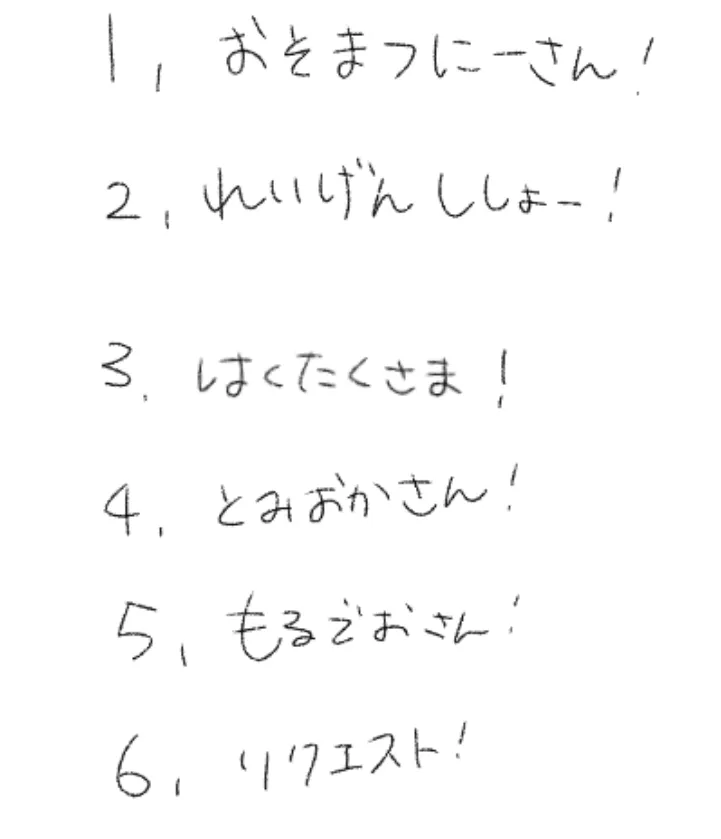 1, おそまつにーさん!
2, れいげんししょー!
3. はくたくさま!
4, とみおかさん!
5, もるでおさん!
6, リクエスト!